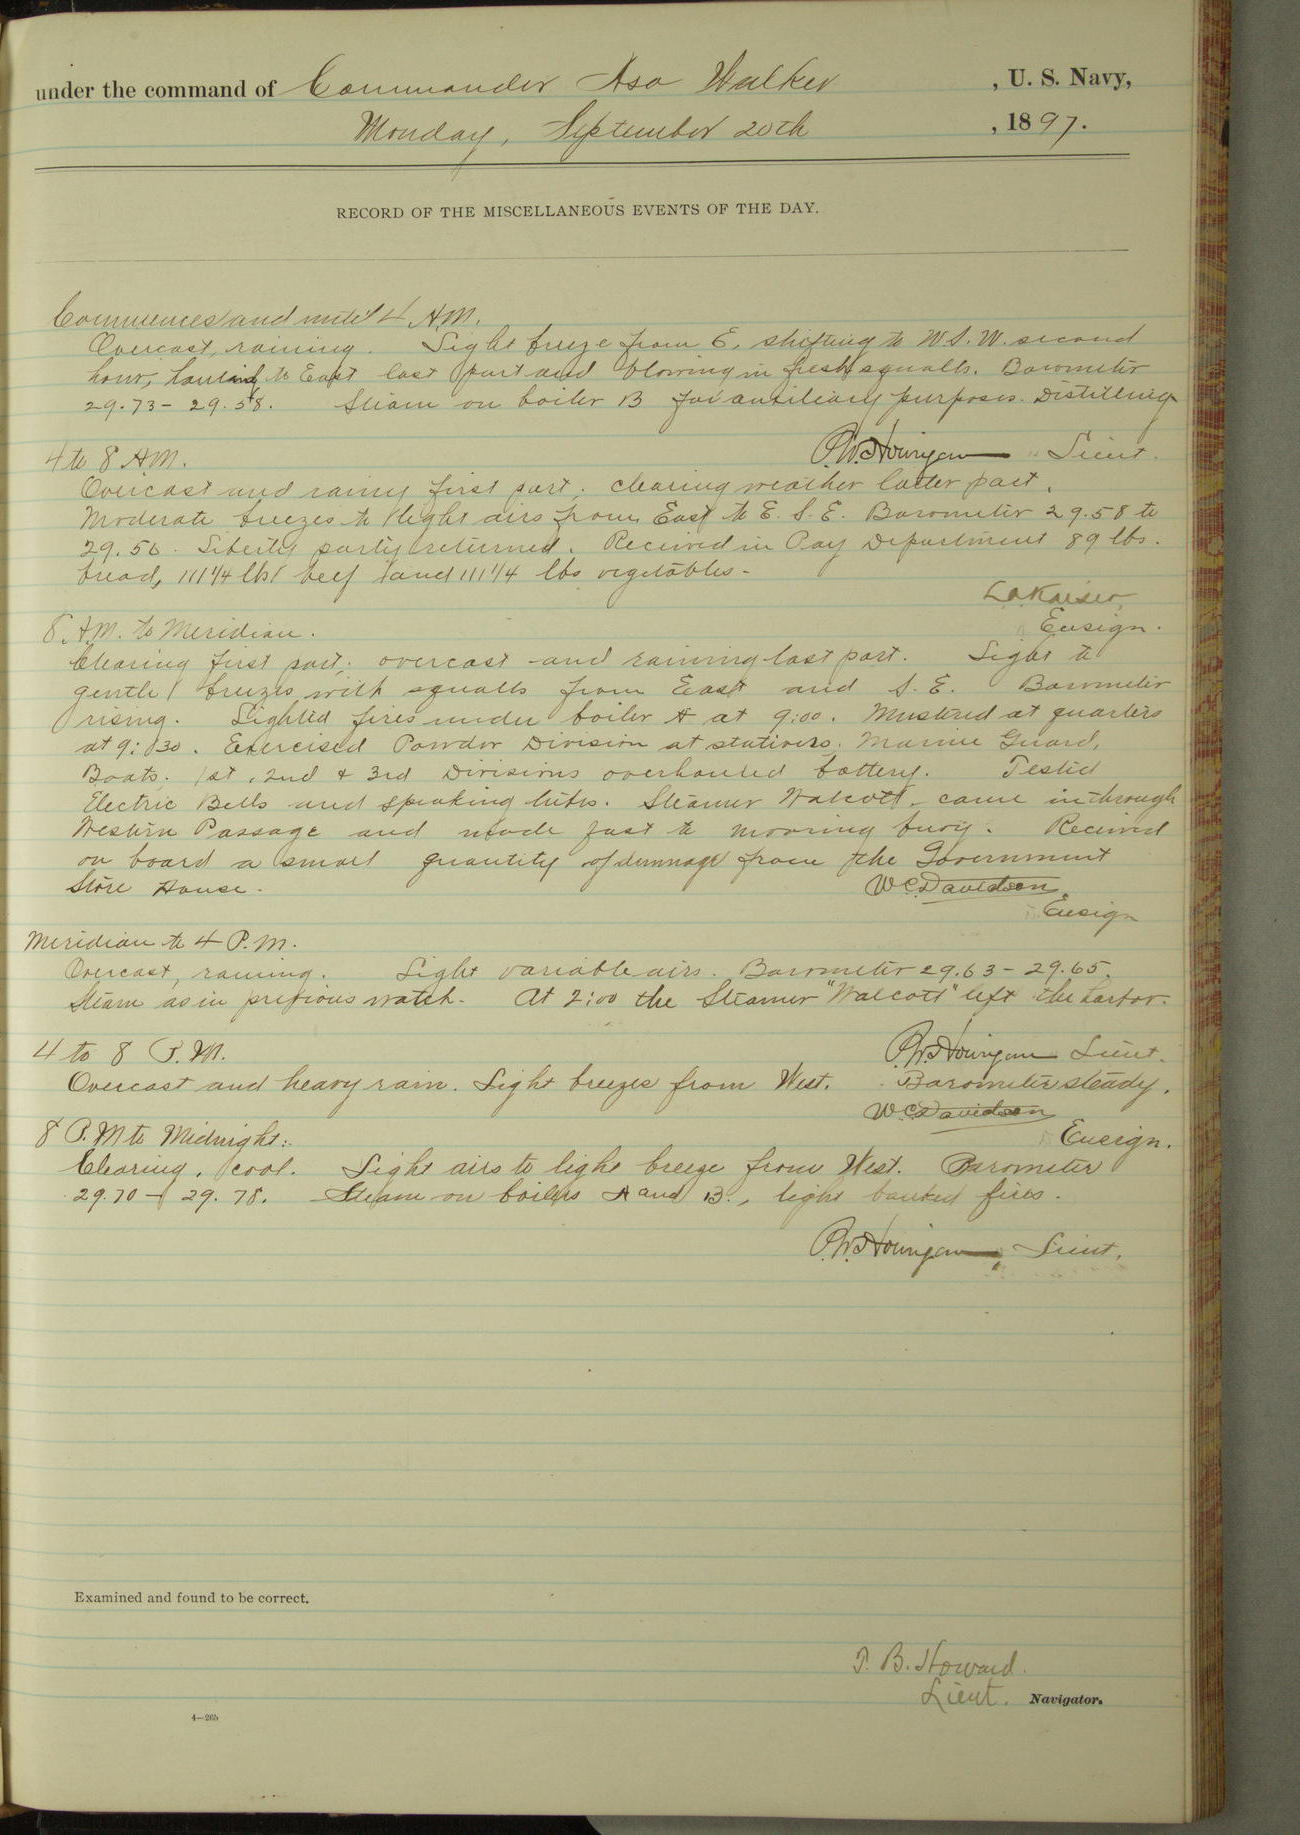 under the command of Commander Asa Walker, U. S. Navy,
Monday, September 20th, 1897.
RECORD OF THE MISCELLANEOUS EVENTS OF THE DAY.
Commences and until 4 A.M.
Overcast, raining. Light breeze from E. shifting to W.S.W. second
hour, hauling to East last part and blowing in fresh squalls. Barometer
29.73 - 29.58. Steam on boiler B for auxiliary purposes. Distilling
P.W. Hourigan Lieut.
4 to 8 A.M.
Overcast and rainy first part; clearing weather latter part.
Moderate breezes to light airs from East to E.S.E. Barometer 29.58 to
29.56. Liberty party returned. Received in Pay Department 89 lbs.
bread, 111 1/4 lbs beef and 111 1/4 lbs vegetables.
L.A. Kaiser,
Ensign.
8 A.M. to Meridian.
Clearing first part; overcast and raining last part. Light to
gentle breezes with squalls from East and S.E. Barometer
rising. Lighted fires under boiler A at 9:00. Mustered at quarters
at 9:30. Exercised Powder Division at stations. Marine Guard,
Boats. 1st, 2nd & 3rd Divisions overhauled battery. Tested
Electric Bells and speaking tubes. Steamer Walcott came in through
Western Passage and made fast to mooring buoy. Received
on board a small quantity of dunnage from the Government
Store House.
W.C. Davidson
Ensign
Meridian to 4 P.M.
Overcast, raining. Light variable airs. Barometer 29.63 - 29.65.
Steam as in previous watch. At 2:00 the Steamer "Walcott" left the harbor.
P.W. Hourigan Lieut.
4 to 8 P.M.
Overcast and heavy rain. Light breezes from West. Barometer steady.
W.C. Davidson
Ensign.
8 P.M to Midnight:
Clearing, cool. Light airs to light breeze from West. Barometer
29.70 - 29.78. Steam on boilers A and B., light banked fires.
P.W. Hourigan, Lieut.
Examined and found to be correct.
T. B. Howard.
Lieut. Navigator.
4—265